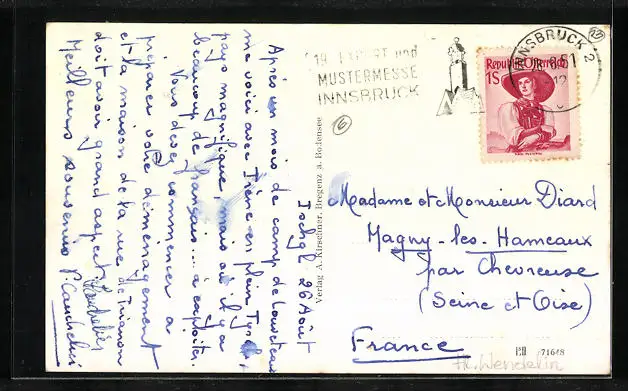 Ischgl 26 Août
Après un mois de camp de louveteaux
me voici avec Tiène en plein Tyrol,
pays magnifique, mais où il y a
beaucoup de français... à exploiter.
Vous devez commencer à
préparer votre déménagement
et la maison de la rue de Trianon
doit avoir grand aspect.
Meilleurs souvenirs P.
Verlag A. Kirschner, Bregenz a. Bodensee
19. EXPORT und
MUSTERMESSE
INNSBRUCK
INNSBRUCK 2
Republik Österreich
1S
6
Madame et Monsieur Diard
Magny-les-Hameaux
par Chevreuse
(Seine et Oise)
France
71648
H. Wendelin